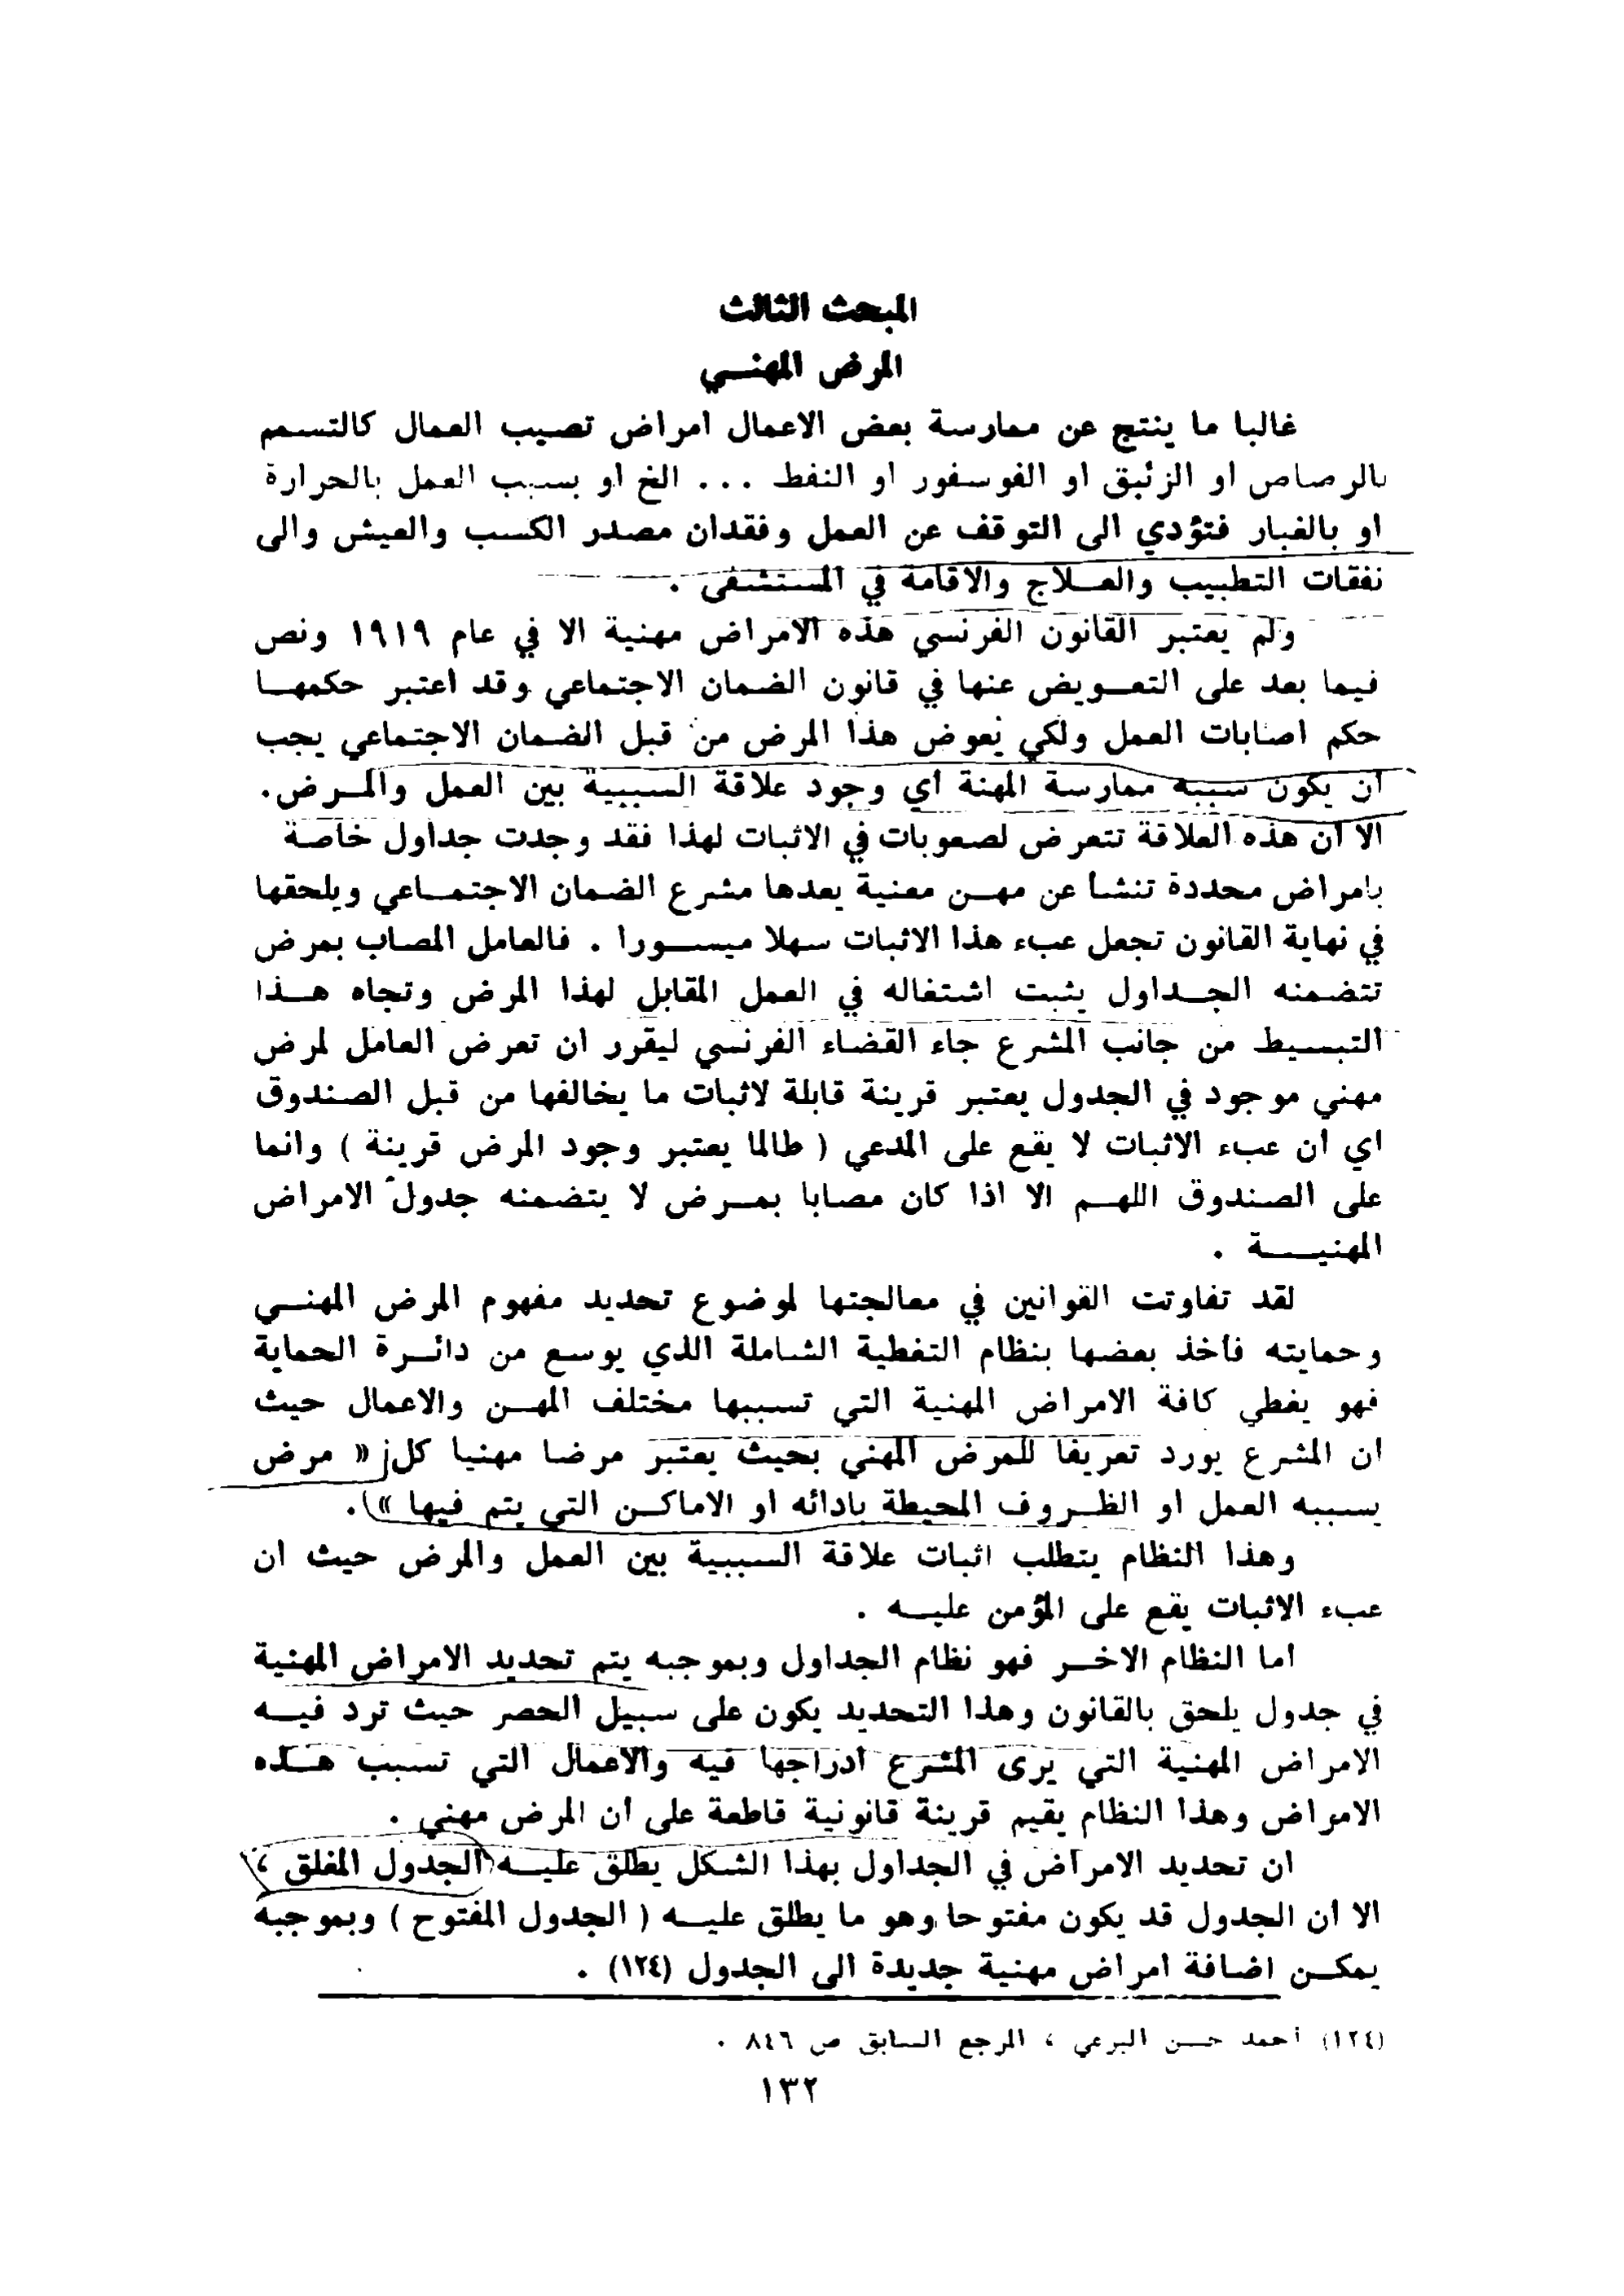 المبحث الثالث
المرض المهنــي
غالبا ما ينتج عن ممارسة بعض الاعمال امراض تصيب العمال كالتسمم
بالرصاص او الزئبق او الفوسفور او النفط ... الخ او بسبب العمل بالحرارة
او بالغبار فتؤدي الى التوقف عن العمل وفقدان مصدر الكسب والعيش والى
نفقات التطبيب والعــلاج والاقامة في المستشفى .
ولم يعتبر القانون الفرنسي هذه الامراض مهنية الا في عام ١٩١٩ ونص
فيما بعد على التعــويض عنها في قانون الضمان الاجتماعي وقد اعتبر حكمهــا
حكم اصابات العمل ولكي يعوض هذا المرض من قبل الضمان الاجتماعي يجب
ان يكون سببه ممارسة المهنة أي وجود علاقة السببية بين العمل والمــرض.
الا ان هذه العلاقة تتعرض لصعوبات في الاثبات لهذا فقد وجدت جداول خاصة
بامراض محددة تنشأ عن مهــن معنية يعدها مشرع الضمان الاجتمــاعي ويلحقها
في نهاية القانون تجعل عبء هذا الاثبات سهلا ميســورا . فالعامل المصاب بمرض
تتضمنه الجــداول يثبت اشتغاله في العمل المقابل لهذا المرض وتجاه هــذا
التبسيط من جانب المشرع جاء القضاء الفرنسي ليقرر ان تعرض العامل لمرض
مهني موجود في الجدول يعتبر قرينة قابلة لاثبات ما يخالفها من قبل الصندوق
اي ان عبء الاثبات لا يقع على المدعي ( طالما يعتبر وجود المرض قرينة ) وانما
على الصندوق اللهــم الا اذا كان مصابا بمــرض لا يتضمنه جدول الامراض
المهنيــــة .
لقد تفاوتت القوانين في معالجتها لموضوع تحديد مفهوم المرض المهنــي
وحمايته فأخذ بعضها بنظام التغطية الشاملة الذي يوسع من دائــرة الحماية
فهو يغطي كافة الامراض المهنية التي تسببها مختلف المهــن والاعمال حيث
ان المشرع يورد تعريفا للمرض المهني بحيث يعتبر مرضا مهنيا كل « مرض
يسببه العمل او الظــروف المحيطة بادائه او الاماكــن التي يتم فيها » .
وهذا النظام يتطلب اثبات علاقة السببية بين العمل والمرض حيث ان
عبء الاثبات يقع على المؤمن عليــه .
اما النظام الاخــر فهو نظام الجداول وبموجبه يتم تحديد الامراض المهنية
في جدول يلحق بالقانون وهذا التحديد يكون على سبيل الحصر حيث ترد فيــه
الامراض المهنية التي يرى المشرع ادراجها فيه والاعمال التي تسبب هــذه
الامراض وهذا النظام يقيم قرينة قانونية قاطعة على ان المرض مهني .
ان تحديد الامراض في الجداول بهذا الشكل يطلق عليــه الجدول المغلق ،
الا ان الجدول قد يكون مفتوحا وهو ما يطلق عليــه ( الجدول المفتوح ) وبموجبه
يمكــن اضافة امراض مهنية جديدة الى الجدول (١٢٤) .
(١٢٤) أحمد حسن البرعي ، المرجع السابق ص ٨٤٦ .
١٣٢